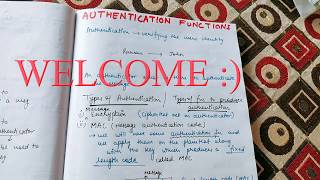 AUTHENTICATION FUNCTIONS
Authentication → verifying the user identity
→ John
WELCOME :)
An authenticator
message
Types of Authentication / Types of fn to produce
Message authentication
(i) Encryption (cipher text act as authenticator)
(ii) MAC (message authentication code)
→ we will have some authentication fn and
we apply them on the plain text along
with the key which produces a fixed
length code called MAC
message